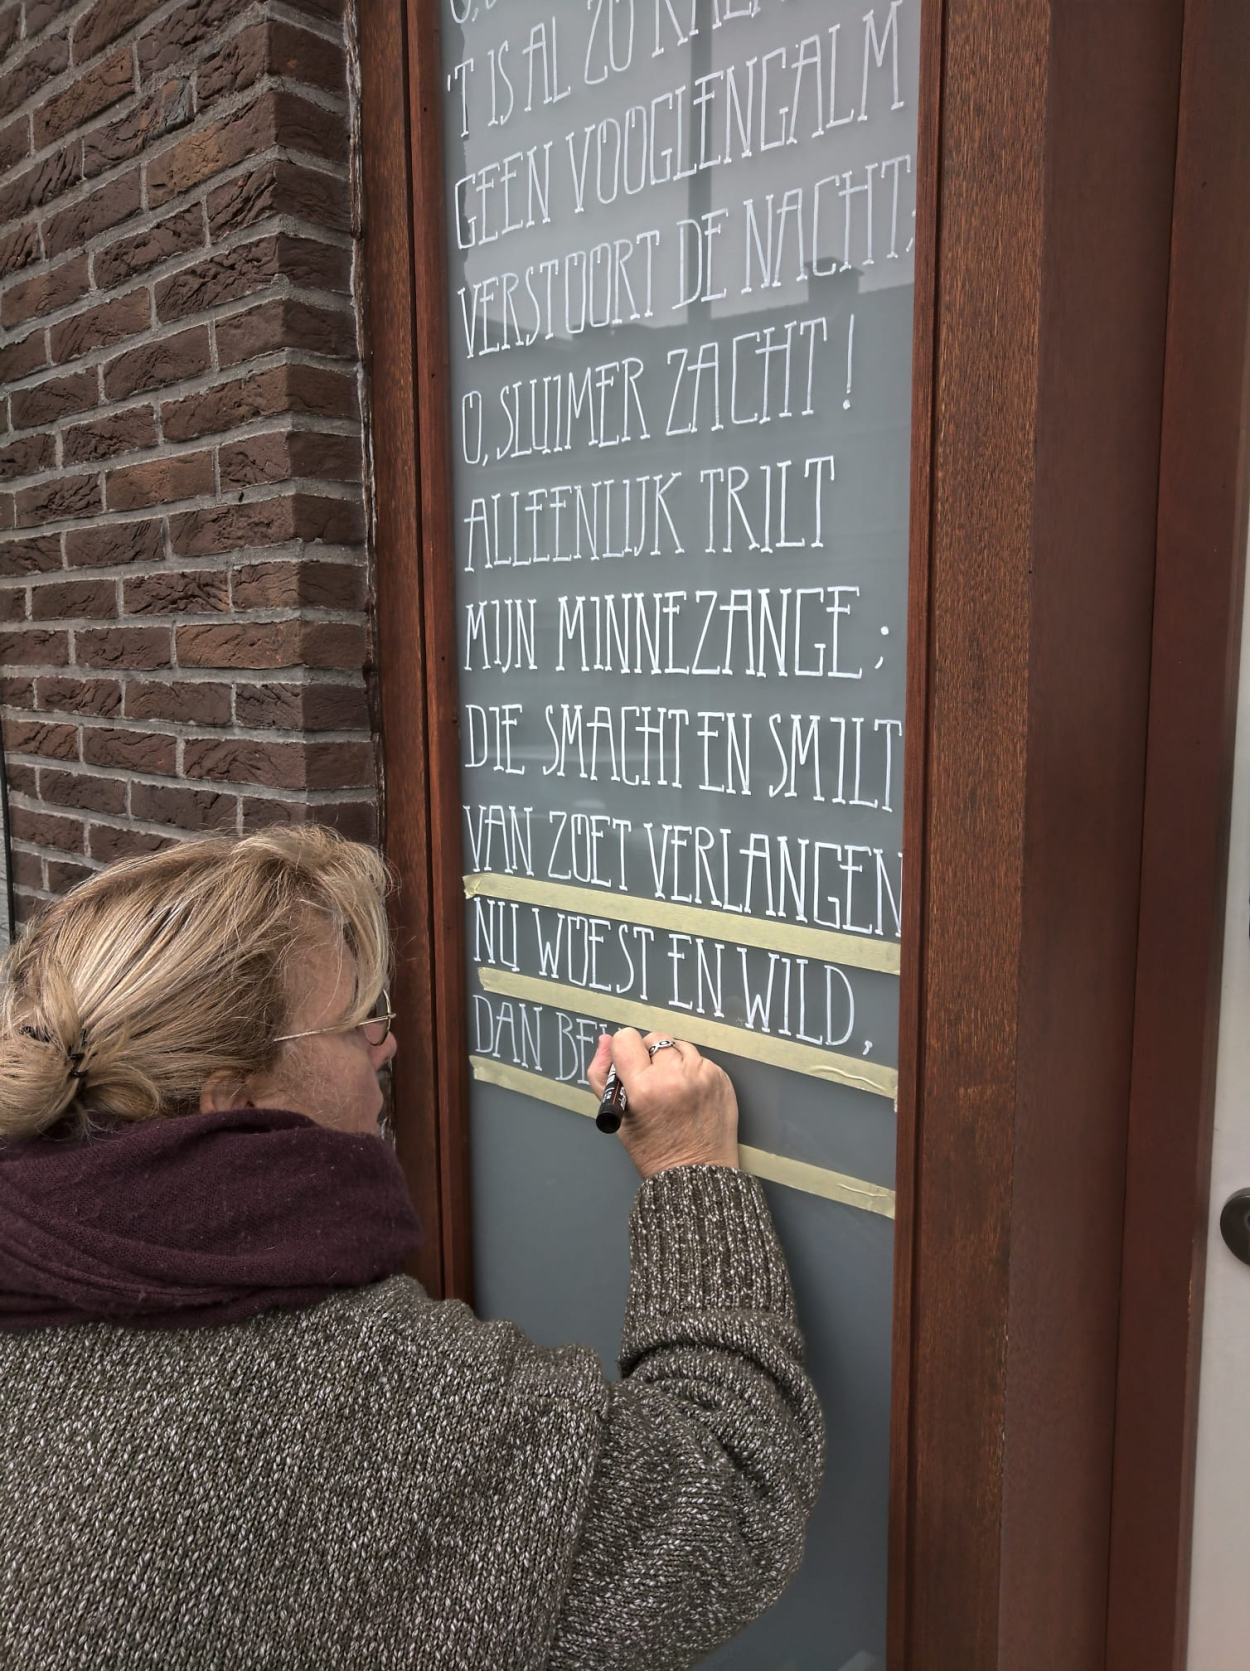 'T IS AL ZO
GEEN VOOGLENGALM
VERSTOORT DE NACHT;
O, SLUIMER ZACHT!
ALLEENLIJK TRILT
MIJN MINNEZANGE;
DIE SMACHT EN SMILT
VAN ZOET VERLANGEN
NU WOEST EN WILD,
DAN